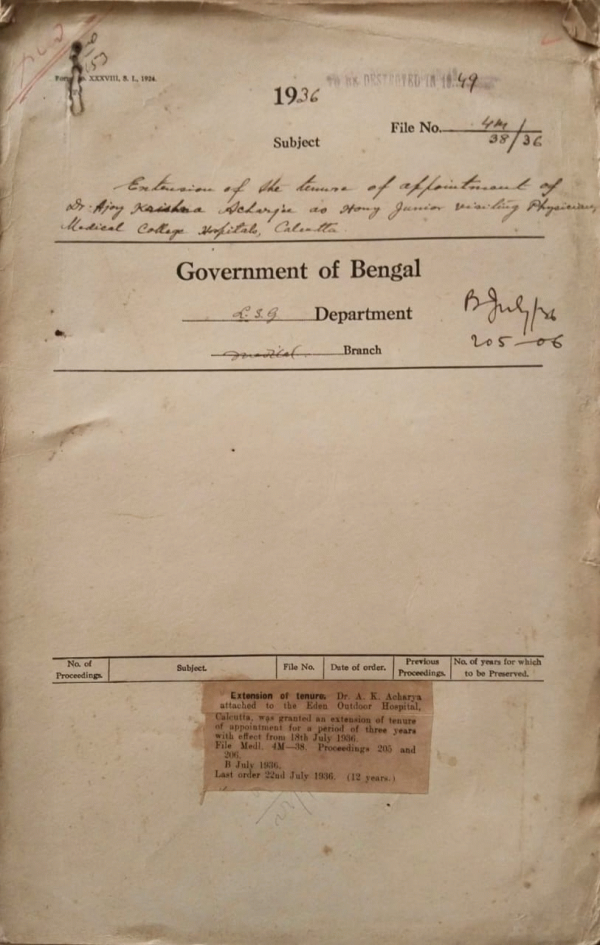 XXXVIII, S. I., 1934.
TO BE DESTROYED IN 1949
1936
File No. 4M/38/36
Subject
Extension of the tenure of appointment of
Dr. Ajoy Krishna Acharjee as Hony Junior visiting Physician,
Medical College Hospitals, Calcutta.
Government of Bengal
L. S. G Department
B July/36
Medical Branch
205-06
No. of Proceedings. Subject. File No. Date of order. Previous Proceedings. No. of years for which to be Preserved.
Extension of tenure. Dr. A. K. Acharya
attached to the Eden Outdoor Hospital,
Calcutta, was granted an extension of tenure
of appointment for a period of three years
with effect from 18th July 1936.
File Medl. 4M—38. Proceedings 205 and
206.
B July 1936.
Last order 22nd July 1936. (12 years.)